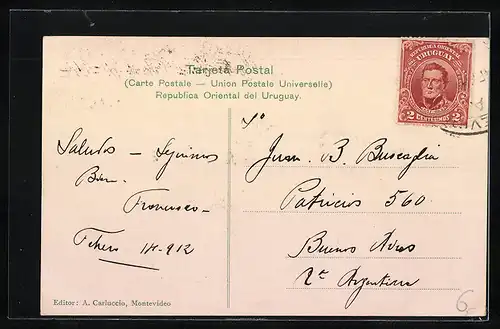 Tarjeta Postal
(Carte Postale — Union Postale Universelle)
Republica Oriental del Uruguay.
REPUBLICA ORIENTAL
URUGUAY
2 CENTESIMOS 2
Saludos – Seguimos
Bien.
Francisco –
912
Sr
Juan. B. Buscaglia
Patricios 560
Buenos Aires
Rca Argentina
Editor: A. Carluccio, Montevideo
6.–